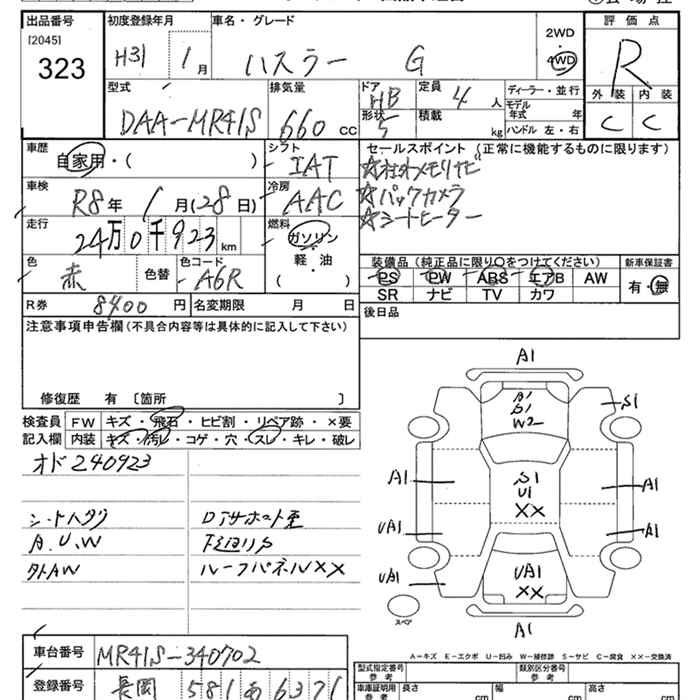 出品番号 初度登録年月 車名・グレード 評価点
[2045]
323 H31 1月 ハスラー G 2WD 4WD R
型式 排気量 ドア形状 定員 ディーラー・並行 外装 内装
DAA-MR41S 660cc HB 5 4人 モデル年式 年式 C C
積載 kg ハンドル 左・右
車歴 シフト セールスポイント (正常に機能するものに限ります)
自家用・( ) IAT ☆社外メモリナビ
車検 冷房 ☆バックカメラ
R8年 1月(28日) AAC ☆シートヒーター
走行 燃料
24万0千923km ガソリン
軽・油
( )
色 赤 色替 色コード A6R
装備品(純正品に限り○をつけてください) 新車保証書
PS PW ABS エアB AW 有・無
SR ナビ TV カワ
R券 8400円 名変期限 月 日 後日品
注意事項申告欄(不具合内容等は具体的に記入して下さい)
修復歴 有 〔箇所 〕
検査員 FW キズ・飛石・ヒビ割・リペア跡・×要
記入欄 内装 キズ・汚れ・コゲ・穴・スレ・キレ・破レ
オド240923
シートハタリ Dアサポート歪
A.U.W 下廻りS
タイトAW ルーフパネルXX
A1
A1
S1
W2
S1
A1
S1
U1
XX
A1
UA1
A1
UA1
UA1
XX
スペア
A1
A-キズ E-エクボ U-凹み W-補修跡 S-サビ C-腐食 XX-交換済
車台番号 MR41S-340702
型式指定番号 参考 類別区分番号 参考
登録番号 長岡 581 あ 6371
車庫証明用 参考 長さ cm 幅 cm 高さ cm